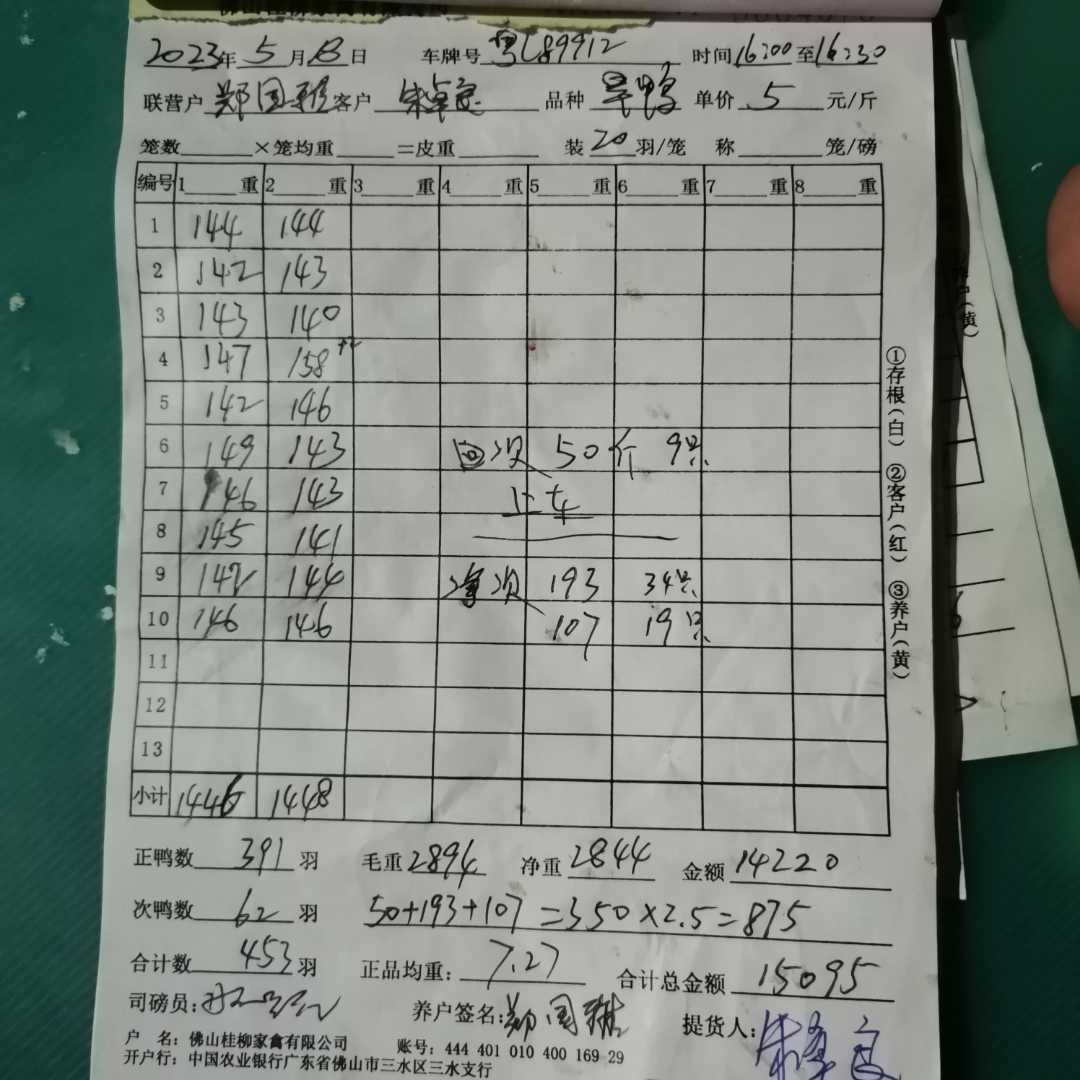 2023年5月13日 车牌号 粤L89912 时间16:00至16:30
联营户 郑国雅 客户 朱卓良 品种 旱鸭 单价 5 元/斤
笼数 ×笼均重 =皮重 装20羽/笼 称 笼/磅
编号 1 重 2 重 3 重 4 重 5 重 6 重 7 重 8 重
1 144 144
2 142 143
3 143 140
4 147 158
5 142 146
6 149 143 次 50斤 9只
7 146 143 上车
8 145 141
9 142 144 次 193 34只
10 146 146 107 19只
11
12
13
小计 1446 1448
正鸭数 391 羽 毛重 2894 净重 2844 金额 14220
次鸭数 62 羽 50+193+107=350×2.5=875
合计数 453 羽 正品均重: 7.27 合计总金额 15095
司磅员: 养户签名: 郑国雅 提货人: 朱卓良
户 名: 佛山桂柳家禽有限公司 账号: 444 401 010 400 169 29
开户行: 中国农业银行广东省佛山市三水区三水支行
①存根(白) ②客户(红) ③养户(黄)